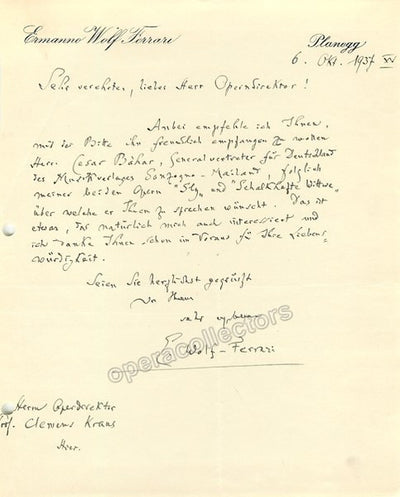 Ermanno Wolf Ferrari
Planegg
6. Okt. 1937 XV
Sehr verehrter, lieber Herr Operndirektor!
Anbei empfehle ich Ihnen,
mit der Bitte ihn freundlich empfangen zu wollen
Herrn Cesar Bähar, Generalvertreter für Deutschland
des Musikverlages Sonzogno - Mailand, folglich
meiner beiden Opern "Sly" und "Schalkhafte Wittwe",
über welche er Ihnen zu sprechen wünscht. Das ist
etwas, das natürlich mich auch interessiert und
ich danke Ihnen schon im Voraus für Ihre Liebens-
würdigkeit.
Seien Sie herzlichst gegrüsst
von Ihrem
sehr ergebenen
E. Wolf-Ferrari
operacollectors
Herrn Operdirektor
Prof. Clemens Kraus
Hier.